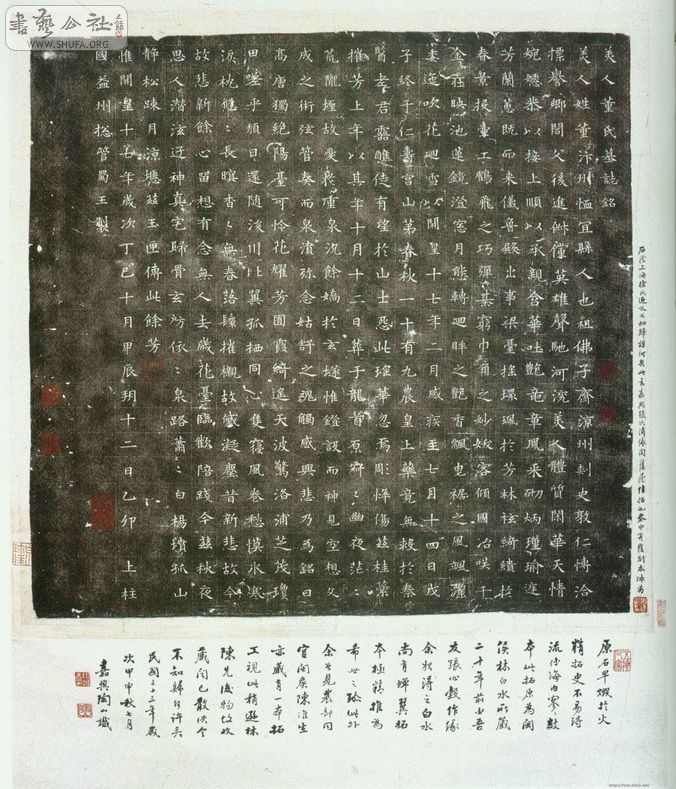 書藝公社
WWW.SHUFA.ORG
美人董氏墓誌銘
美人姓董汴州恤宜縣人也祖佛子齊涼州刺史敦仁博洽
標譽鄉閭父後進俶儻英雄聲馳河浣美人體質閑華天情
婉嫕恭以接上順以承親含華吐艷竜章鳳采砌炳瑾瑜庭
芳蘭蕙既而來儀魯殿出事梁臺搖環珮於芳林袨綺繢於
春景投壺工鶴飛之巧彈棊窮巾角之妙妖容傾國冶咲千
金莊映池蓮鏡澄窻月態轉迴眸之艷香飄曳裾之風颯灑
委迤吹花迴雪以開皇十七年二月感疾至七月十四日戊
子終于仁壽宮山第春秋一十有九農皇上藥竟無救於秦
醫老君靈醮徒有望於山士怨此瑤華忽焉彫悴傷茲桂蘂
摧芳上年以其年十月十二日葬于龍首原寂〻幽夜茫〻
荒隴埋故愛於重泉沉餘嬌於玄隧惟鐙設而神見空想文
成之術弦管奏而泉濆弥念姑舒之魂觸感興悲乃為銘曰
高唐獨絕陽臺可怜花耀芳囿霞綺遙天波驚洛浦芝茂瓊
田嗟乎頹日還隨湲川比翼孤栖同心隻寢風卷愁慔冰寒
淚枕悠〻長暝杳〻無春落鬟摧櫬故黛凝塵昔新悲故今
故悲新餘心留想有念無人去歲花臺臨歡陪踐今茲秋夜
思人潛泫迓神真宅歸骨玄房依〻泉路蕭〻白楊墳孤山
靜松疎月涼瘞茲玉匣傳此餘芳
惟開皇十七年歲次丁巳十月甲辰朔十二日乙卯上柱
國益州揔管蜀王製
原石早燬於火
精拓更不易得
流傳海內寥〻數
本此拓原為閩
侯林白水所藏
二十年前由吾
友張心穀作緣
余始得之白水
尚有蟬翼拓
本極精推為
希世之珍此外
余曾見農部同
官閩矦陳淮生
亦藏有一本拓
工視此稍遜林
陳先後物故收
藏聞已散佚今
不知歸何許矣
民國三十三年歲
次甲申秋七月
嘉興陶山識